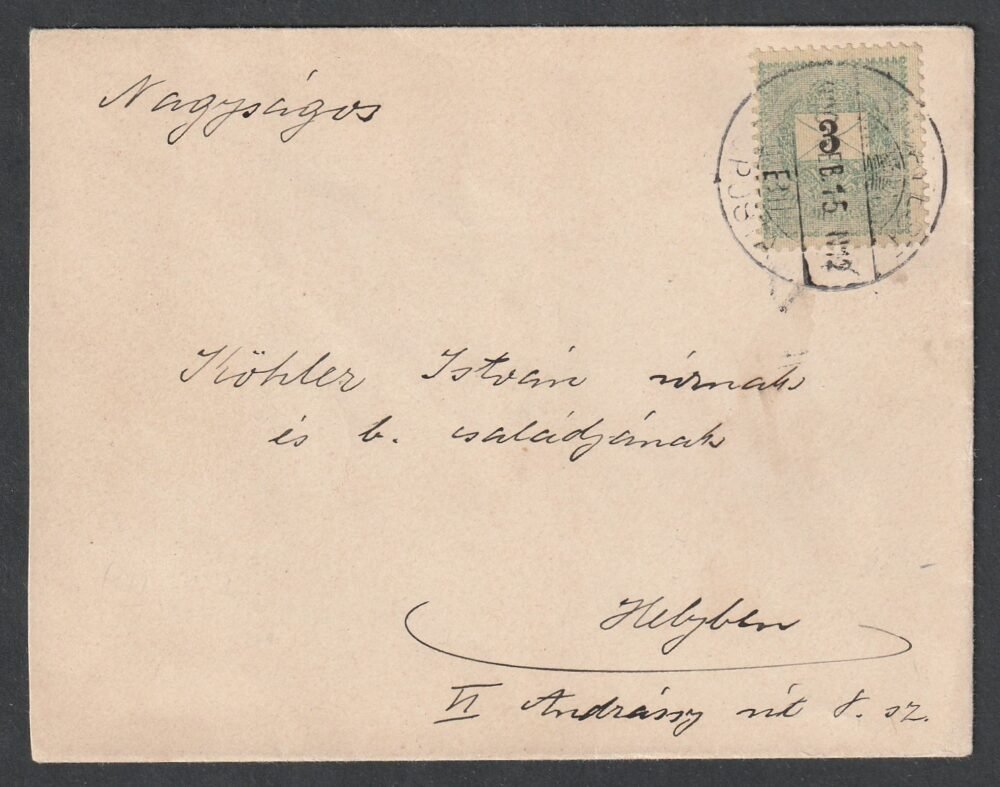 Nagyságos
3
FEB. 15. N12
Köhler István úrnak
és b. családjának
Helyben
VI Andrássy út 8. sz.